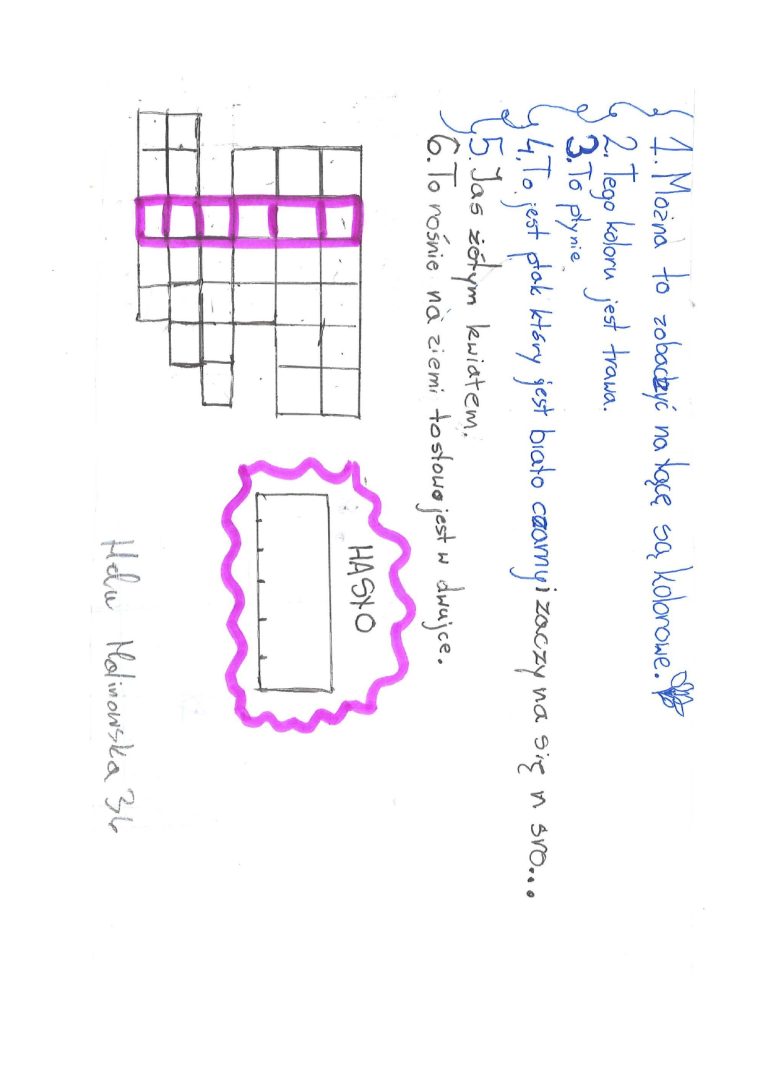 1. Można to zobaczyć na łące są kolorowe.
2. Tego koloru jest trawa.
3. To płynie
4. To jest ptak który jest biało czarny i zaczyna się n sro...
5. Jas żółtym kwiatem.
6. To rośnie na ziemi to słowo jest w dwujce.
HASŁO
Malinowska 3b